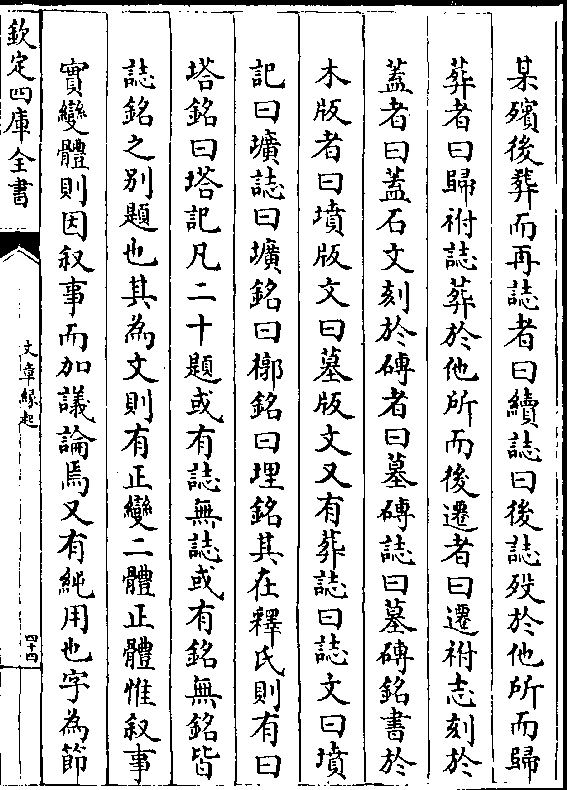 某殯後葬而再誌者曰續誌曰後誌歿於他所而歸
葬者曰歸祔誌葬於他所而後遷者曰遷祔志刻於
蓋者曰蓋石文刻於磚者曰墓磚誌曰墓磚銘書於
木版者曰墳版文曰墓版文又有葬誌曰誌文曰墳
記曰壙誌曰壙銘曰槨銘曰埋銘其在釋氏則有曰
塔銘曰塔記凡二十題或有誌無誌或有銘無銘皆
誌銘之别題也其為文則有正變二體正體惟叙事
實變體則因叙事而加議論焉又有純用也字為節
欽定四庫全書
文章緣起
四十四